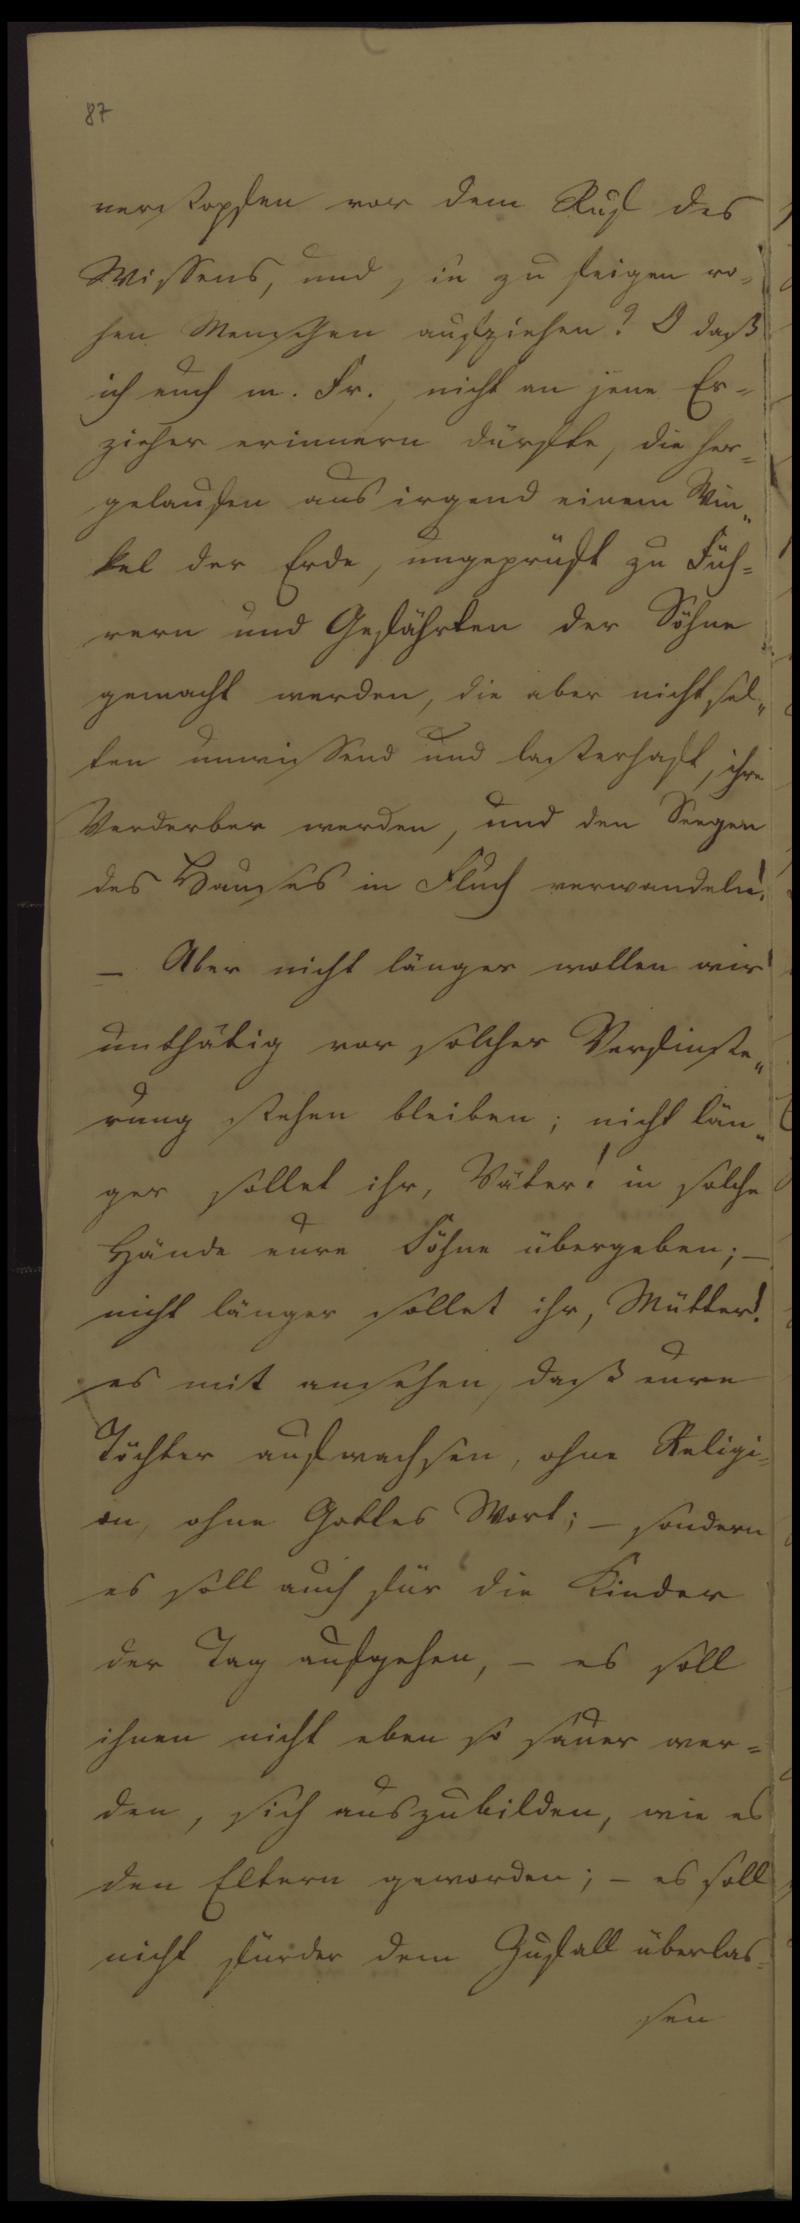 87
verstopfen vor dem Ruf des
Wissens, und sie zu feigen ro-
hen Menschen aufziehen? O daß
ich euch m. Fr., nicht an jene Er-
zieher erinnern dürfte, die her-
gelaufen aus irgend einem Win-
kel der Erde, ungeprüft zu Füh-
rern und Gefährten der Söhne
gemacht werden, die aber nicht sel-
ten unwissend und lasterhaft, ihre
Verderber werden, und den Seegen
des Hauses in Fluch verwandeln!
— Aber nicht länger wollen wir
unthätig vor solcher Verfinste-
rung stehen bleiben; nicht län-
ger sollet ihr, Väter! in solche
Hände eure Söhne übergeben; —
nicht länger sollet ihr, Mütter!
es mit ansehen, daß eure
Töchter aufwachsen, ohne Religi-
on, ohne Gottes Wort; — sondern
es soll auch für die Kinder
der Tag aufgehen, — es soll
ihnen nicht eben so sauer wer-
den, sich auszubilden, wie es
den Eltern geworden; — es soll
nicht fürder dem Zufall überlas-
sen